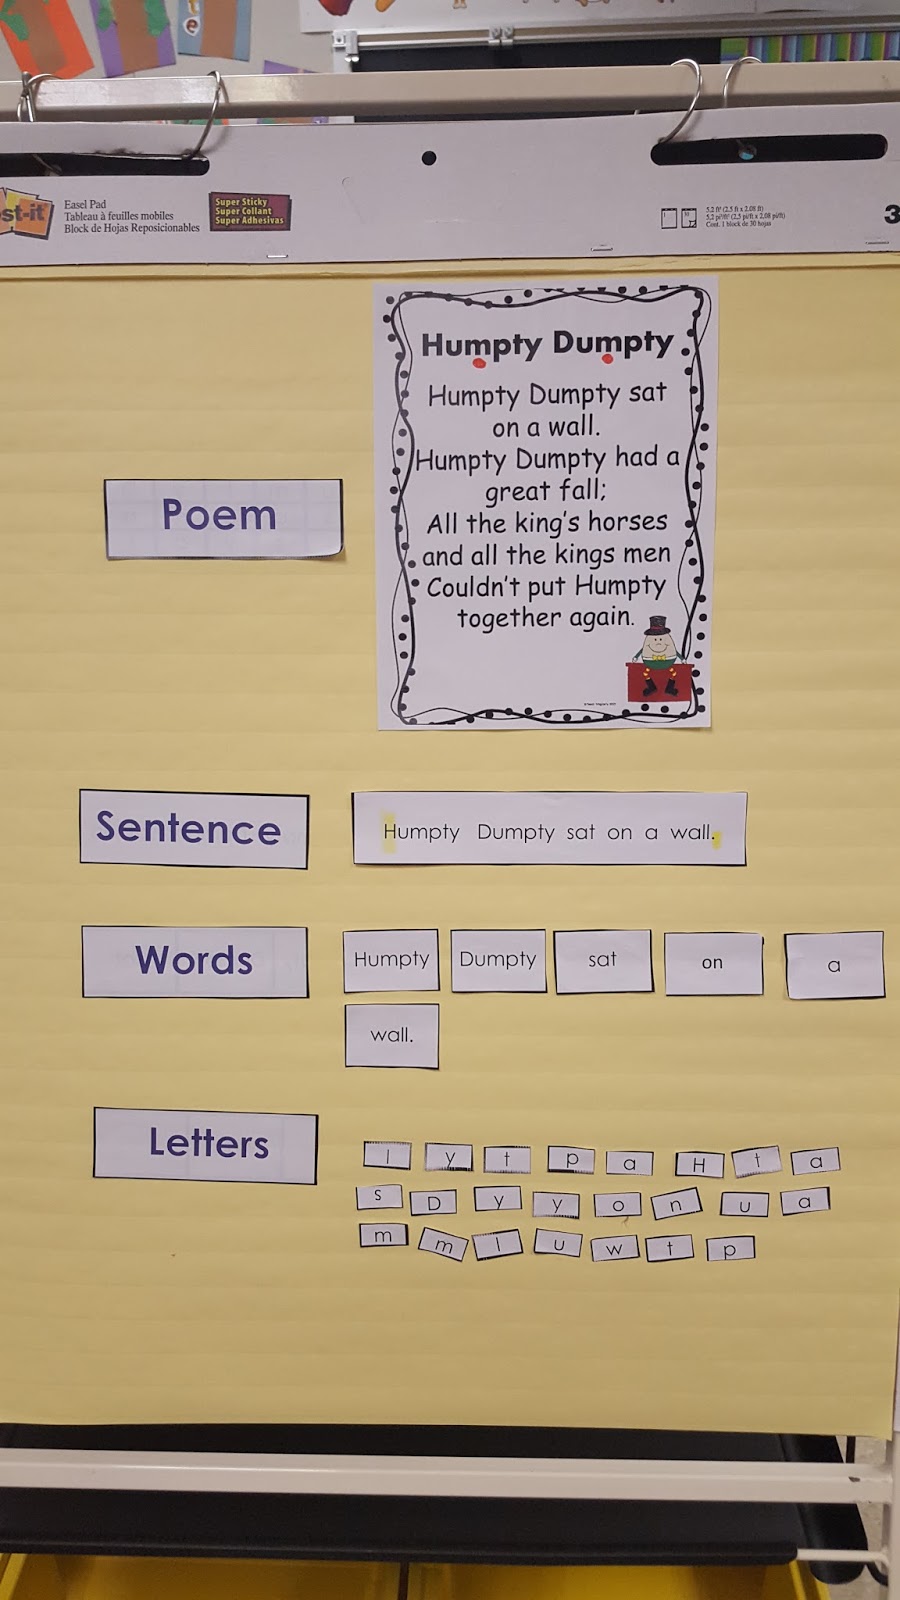 st-it
Easel Pad
Tableau à feuilles mobiles
Block de Hojas Reposicionables
Super Sticky
Super Collant
Super Adhesivas
5,2 ft² (2,5 ft x 2,08 ft)
5,2 pi²/ft² (2,5 pi/ft x 2,08 pi/ft)
Cont. 1 block de 30 hojas
3
Humpty Dumpty
Humpty Dumpty sat
on a wall.
Humpty Dumpty had a
great fall;
All the king's horses
and all the kings men
Couldn't put Humpty
together again.
Poem
Sentence
Humpty Dumpty sat on a wall.
Words
Humpty Dumpty sat on a
wall.
Letters
l y t p a H t a
s D y y o n u a
m m l u w t p